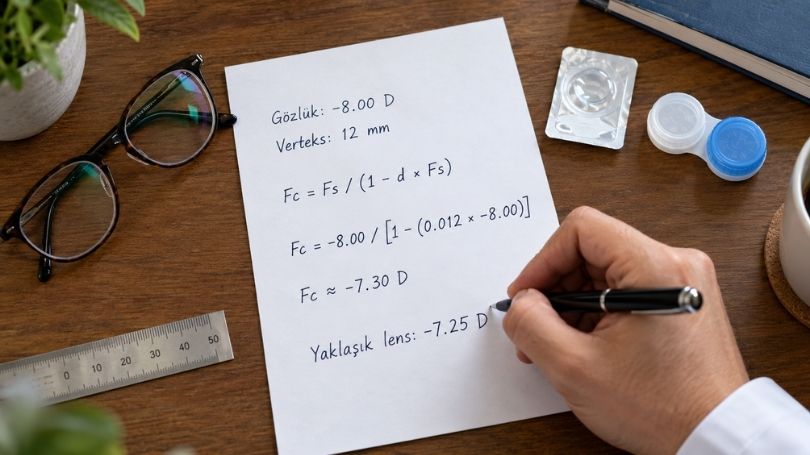 Gözlük: -8.00 D
Verteks: 12 mm
Fc = Fs / (1 - d × Fs)
Fc = -8.00 / [1 - (0.012 × -8.00)]
Fc ≈ -7.30 D
Yaklaşık lens: -7.25 D
0 10 20 30 40 50